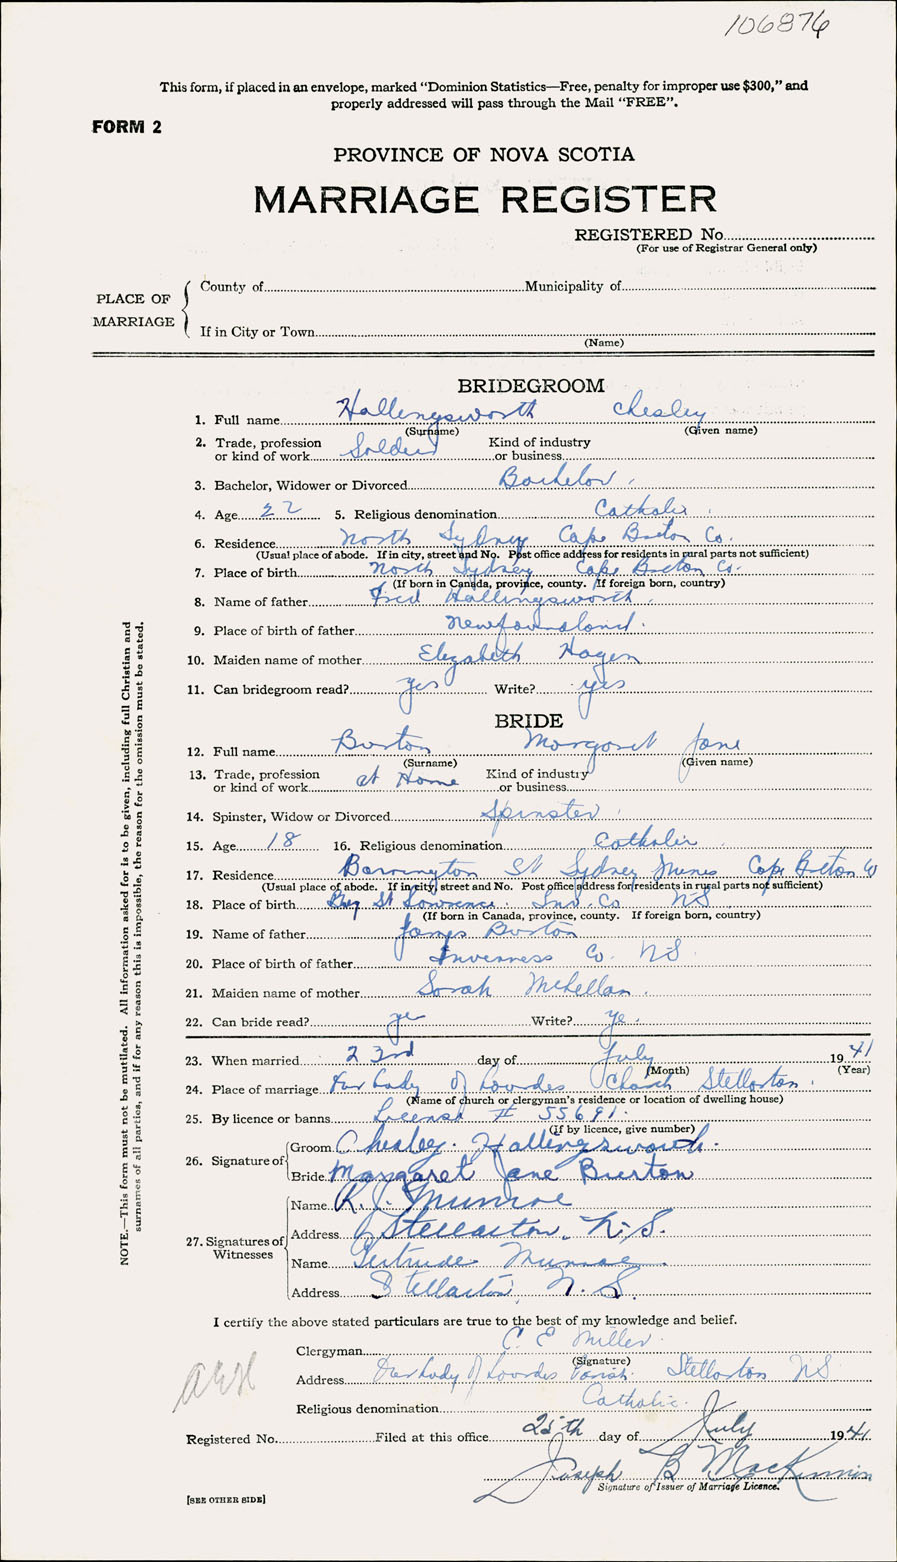 106876
This form, if placed in an envelope, marked "Dominion Statistics—Free, penalty for improper use $300," and
properly addressed will pass through the Mail "FREE".
FORM 2
PROVINCE OF NOVA SCOTIA
MARRIAGE REGISTER
REGISTERED No.
(For use of Registrar General only)
PLACE OF MARRIAGE
County of Municipality of
If in City or Town
(Name)
BRIDEGROOM
1. Full name Hallingsworth Chesley
(Surname) (Given name)
2. Trade, profession Kind of industry
or kind of work Soldier or business
3. Bachelor, Widower or Divorced Bachelor
4. Age 22 5. Religious denomination Catholic
6. Residence North Sydney Cape Breton Co.
(Usual place of abode. If in city, street and No. Post office address for residents in rural parts not sufficient)
7. Place of birth North Sydney Cape Breton Co.
(If born in Canada, province, county. If foreign born, country)
8. Name of father Fred Hallingsworth
9. Place of birth of father Newfoundland
10. Maiden name of mother Elizabeth Hagen
11. Can bridegroom read? yes Write? yes
BRIDE
12. Full name Burton Margaret Jane
(Surname) (Given name)
13. Trade, profession Kind of industry
or kind of work at Home or business
14. Spinster, Widow or Divorced Spinster
15. Age 18 16. Religious denomination Catholic
17. Residence Barrington St Sydney Mines Cape Breton Co
(Usual place of abode. If in city, street and No. Post office address for residents in rural parts not sufficient)
18. Place of birth St Lawrence Inv. Co NS
(If born in Canada, province, county. If foreign born, country)
19. Name of father James Burton
20. Place of birth of father Inverness Co. NS
21. Maiden name of mother Sarah McLellan
22. Can bride read? ye Write? ye
23. When married 23rd day of July 1941
(Month) (Year)
24. Place of marriage Our Lady Of Lourdes Church Stellarton
(Name of church or clergyman's residence or location of dwelling house)
25. By licence or banns License # 55691
(If by licence, give number)
26. Signature of
Groom Chesley Hallingsworth
Bride Margaret Jane Burton
27. Signatures of Witnesses
Name R. J. Munroe
Address Stellarton, N.S.
Name Gertrude Munroe
Address Stellarton, N.S.
I certify the above stated particulars are true to the best of my knowledge and belief.
Clergyman C E Miller
(Signature)
Address Our Lady Of Lourdes Parish Stellarton NS
Religious denomination Catholic
Registered No. Filed at this office 25th day of July 1941
Joseph B MacKinnon
Signature of Issuer of Marriage Licence.
[SEE OTHER SIDE]
NOTE.—This form must not be mutilated. All information asked for is to be given, including full Christian and
surnames of all parties, and if for any reason this is impossible, the reason for the omission must be stated.